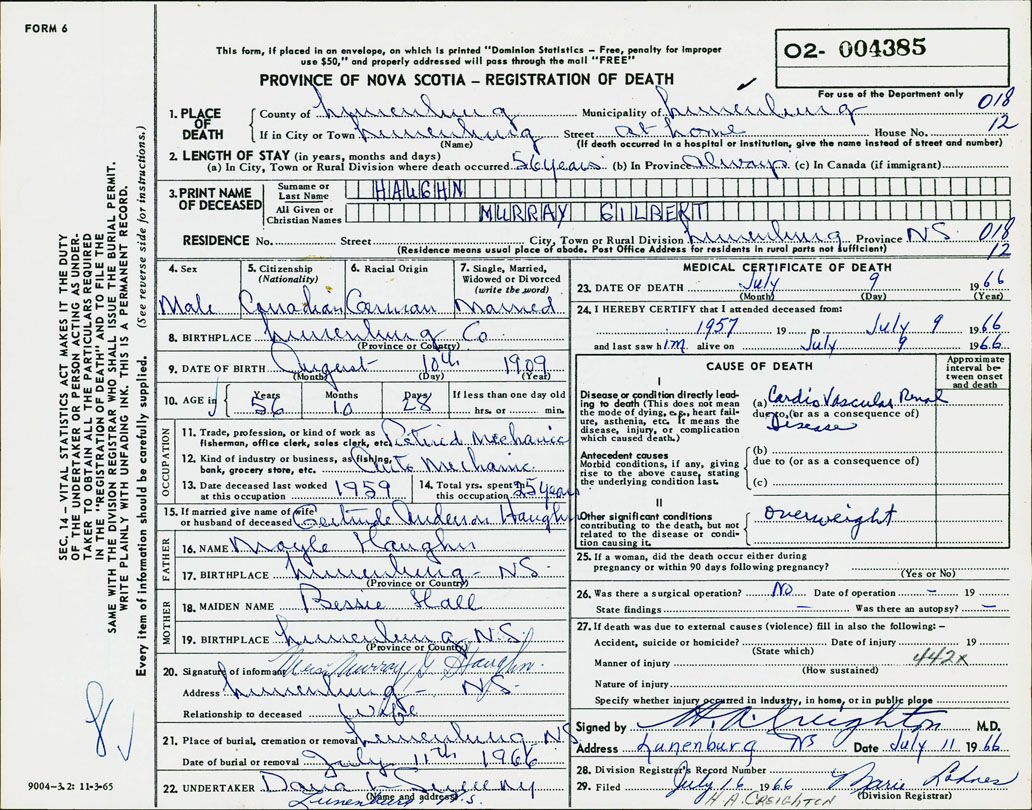 FORM 6
This form, if placed in an envelope, on which is printed "Dominion Statistics – Free, penalty for improper
use $50," and properly addressed will pass through the mail "FREE"
O2- 004385
PROVINCE OF NOVA SCOTIA – REGISTRATION OF DEATH
For use of the Department only
018
12
1. PLACE OF DEATH County of Lunenburg Municipality of Lunenburg
If in City or Town Lunenburg Street at home House No.
(Name) (If death occurred in a hospital or institution, give the name instead of street and number)
2. LENGTH OF STAY (in years, months and days)
(a) In City, Town or Rural Division where death occurred 56 years (b) In Province always (c) In Canada (if immigrant)
3. PRINT NAME OF DECEASED Surname or Last Name HAUGHN
All Given or Christian Names MURRAY GILBERT
RESIDENCE No. Street City, Town or Rural Division Lunenburg Province N.S. 018
(Residence means usual place of abode. Post Office Address for residents in rural parts not sufficient) 12
4. Sex Male
5. Citizenship (Nationality) Canadian
6. Racial Origin German
7. Single, Married, Widowed or Divorced (write the word) Married
8. BIRTHPLACE Lunenburg Co
(Province or Country)
9. DATE OF BIRTH August 10th 1909
(Month) (Day) (Year)
10. AGE in Years 56 Months 10 Days 28 If less than one day old hrs. or min.
OCCUPATION
11. Trade, profession, or kind of work as fisherman, office clerk, sales clerk, etc. Retired Mechanic
12. Kind of industry or business, as fishing, bank, grocery store, etc. Auto Mechanic
13. Date deceased last worked at this occupation 1959
14. Total yrs. spent in this occupation 25 years
15. If married give name of wife or husband of deceased Gertrude Anderson Haughn
FATHER
16. NAME Moyle Haughn
17. BIRTHPLACE Lunenburg - NS.
(Province or Country)
MOTHER
18. MAIDEN NAME Bessie Hall
19. BIRTHPLACE Lunenburg N.S.
(Province or Country)
20. Signature of informant Mrs. Murray G Haughn.
Address Lunenburg - NS.
Relationship to deceased Wife
21. Place of burial, cremation or removal Lunenburg NS
Date of burial or removal July 11th 1966
22. UNDERTAKER Dana L Sweeny
(Name and address)
Lunenburg N.S.
MEDICAL CERTIFICATE OF DEATH
23. DATE OF DEATH July 9 1966
(Month) (Day) (Year)
24. I HEREBY CERTIFY that I attended deceased from:
1957 19 to July 9 1966
and last saw him alive on July 9 1966
CAUSE OF DEATH
Approximate interval between onset and death
I
Disease or condition directly leading to death (This does not mean the mode of dying, e.g., heart failure, asthenia, etc. It means the disease, injury, or complication which caused death.)
(a) Cardio Vascular Renal
due to (or as a consequence of)
Disease
Antecedent causes
Morbid conditions, if any, giving rise to the above cause, stating the underlying condition last.
(b)
due to (or as a consequence of)
(c)
II
Other significant conditions contributing to the death, but not related to the disease or condition causing it.
overweight
25. If a woman, did the death occur either during
pregnancy or within 90 days following pregnancy?
(Yes or No)
26. Was there a surgical operation? No Date of operation – 19
State findings – Was there an autopsy? –
27. If death was due to external causes (violence) fill in also the following: –
Accident, suicide or homicide? Date of injury 19
(State which)
Manner of injury 442x
(How sustained)
Nature of injury
Specify whether injury occurred in Industry, in home, or in public place
Signed by H. A. Creighton M.D.
Address Lunenburg NS Date July 11 1966
28. Division Registrar's Record Number
29. Filed July 16 1966 Marie
(Division Registrar)
H A. CREIGHTON
SEC. 14 – VITAL STATISTICS ACT MAKES IT THE DUTY
OF THE UNDERTAKER OR PERSON ACTING AS UNDER-
TAKER TO OBTAIN ALL THE PARTICULARS REQUIRED
IN THE "REGISTRATION OF DEATH" AND TO FILE THE
SAME WITH THE DIVISION REGISTRAR WHO SHALL ISSUE THE BURIAL PERMIT.
WRITE PLAINLY WITH UNFADING INK. THIS IS A PERMANENT RECORD.
Every item of information should be carefully supplied. (See reverse side for instructions.)
9004-3.2: 11-3-65